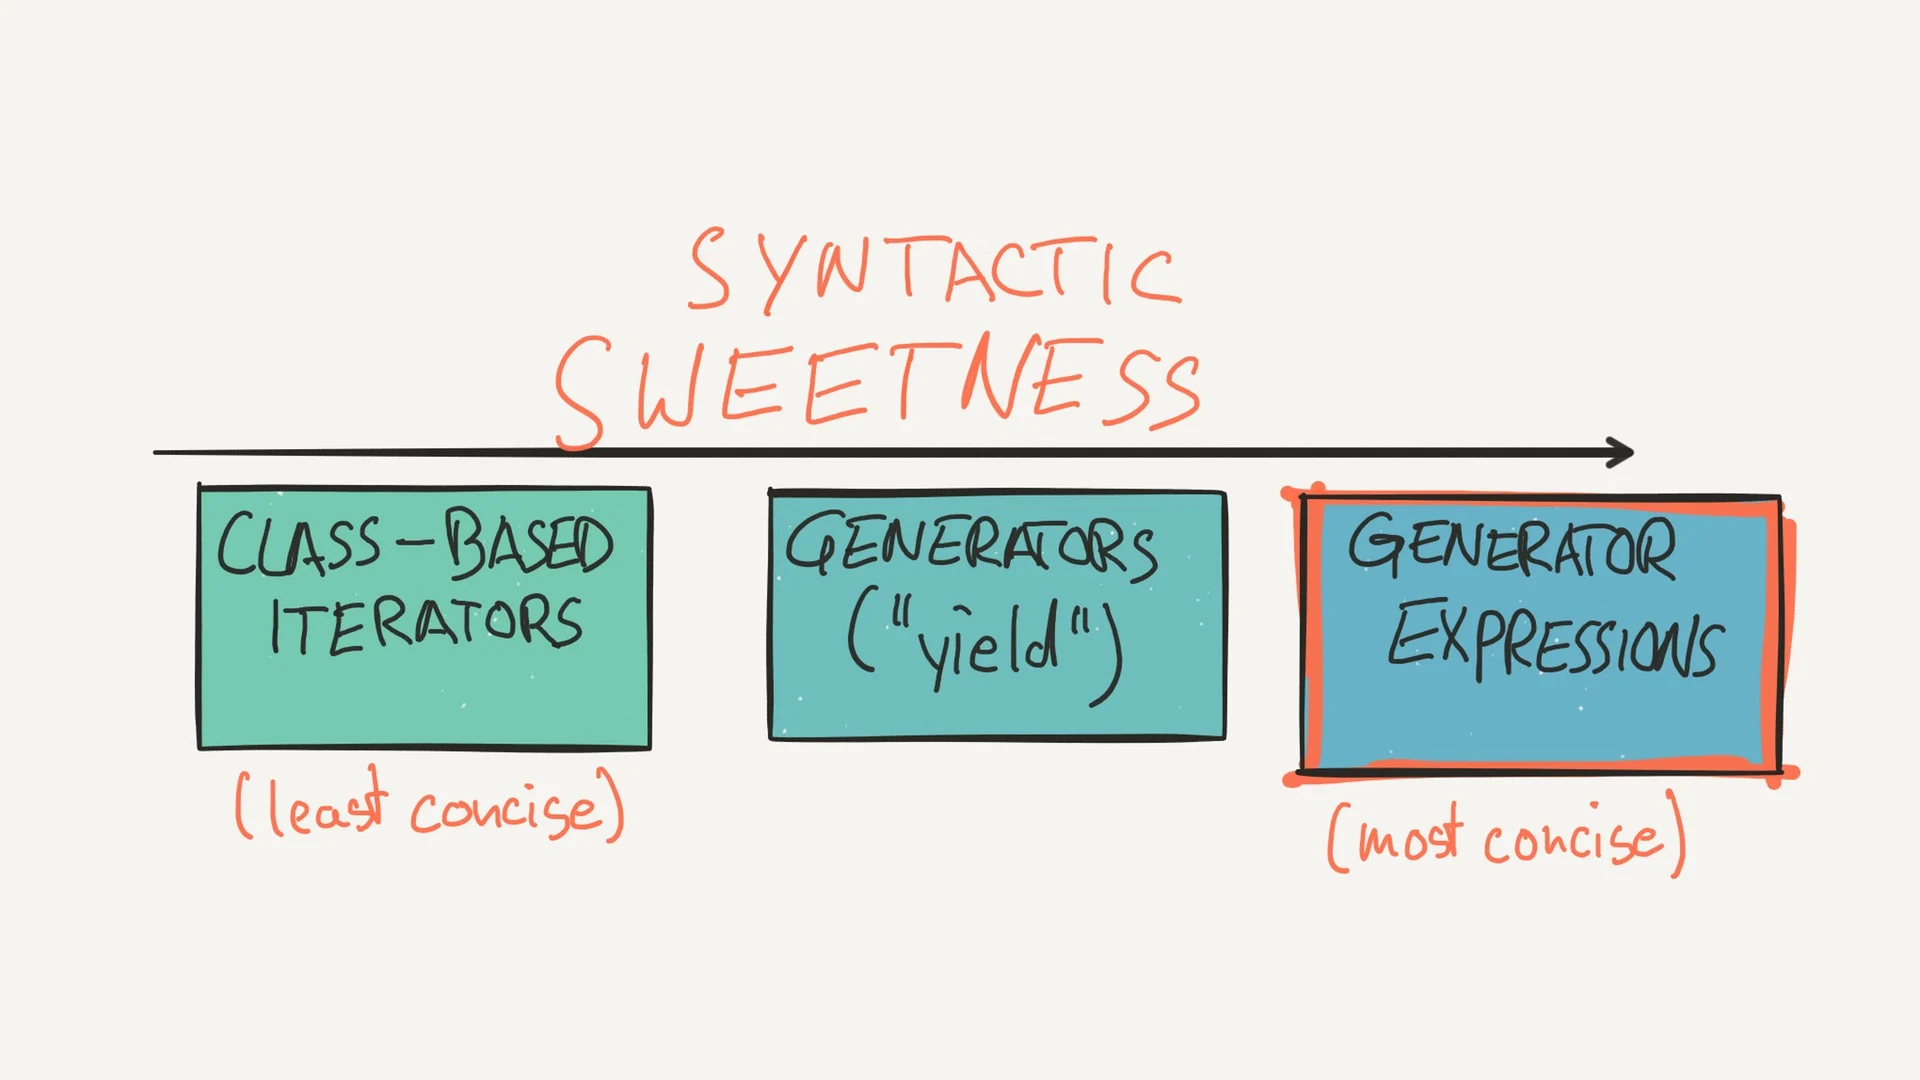 SYNTACTIC
SWEETNESS
CLASS-BASED
ITERATORS
(least concise)
GENERATORS
("yield")
GENERATOR
EXPRESSIONS
(most concise)